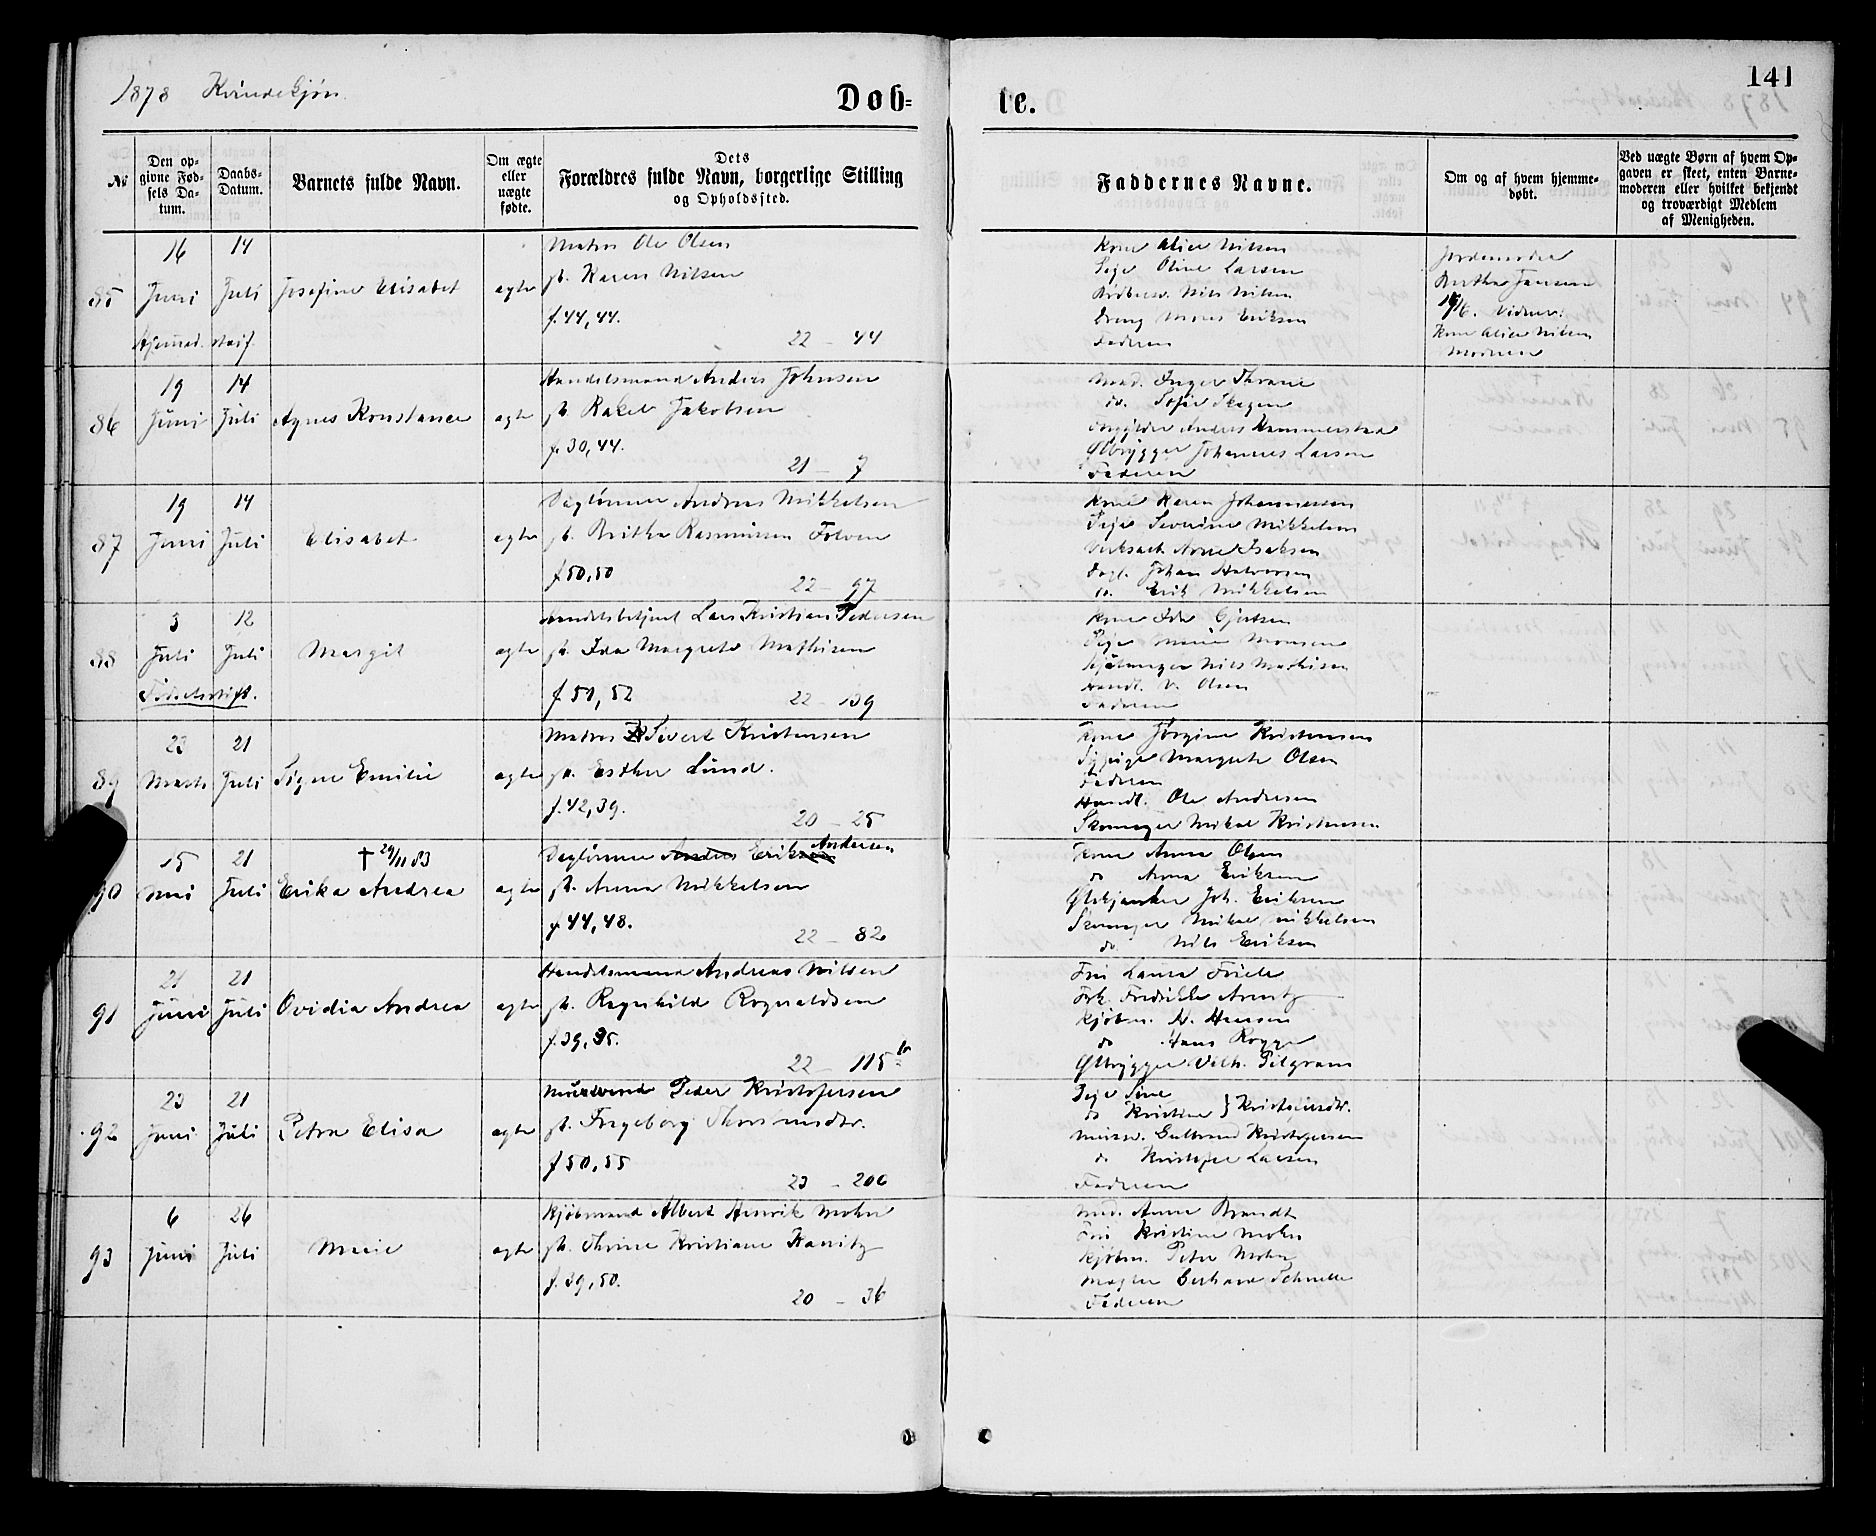 1878 Kvindekjøn.
Døb-
te.
141
№
Den op-
givne Fød-
sels Da-
tum.
Daabs-
Datum.
Barnets fulde Navn.
Om ægte
eller
uægte
fødte.
Dets
Forældres fulde Navn, borgerlige Stilling
og Opholdssted.
Faddernes Navne.
Om og af hvem hjemme-
døbt.
Ved uægte Børn af hvem Op-
gaven er skeet, enten Barne-
moderen eller hvilket bekjendt
og troværdigt Medlem
af Menigheden.
85
16
Juni
14
Juli
Josefine Elisabet
ægte
Matros Ole Olsen
Karen Nilsen
f. 44, 44.
22 – 44
Kone Alice Nilsen
Pige Oline Larsen
Nils Nilsen
Dreng Eriksen
Faderen
Jordemoder
Berthe Jansen
Vidner:
Kone Alice Nilsen
Moderen
86
19
Juni
14
Juli
Agnes Konstance
ægte
Handelsmand Anders Johnsen
Rakel Jakobsen
f. 30, 44.
21 – 7
Mad. Inger Thrane
do. Sofie Skagen
Anders Hammerstad
Ølbrygger Johannes Larsen
Faderen
87
19
Juni
14
Juli
Elisabet
ægte
Dagleinner Andreas Mikkelsen
Britha Rasmusen Folven
f 50, 50
22 – 97
Kone Karen Johannessen
Pige Severine Mikkelsen
Arne Isaksen
Dagl. Johan Halvorsen
do. Erik Mikkelsen
88
3
Juli
12
Juli
Margit
ægte
Handelsbetjent Lars Kristian Pedersen
Ida Margrete Mathisen
f. 51, 52
22 – 139
Fødselsstift.
Kone Ida Gjertsen
Pige Marie Monsen
Nils Mathisen
Handl. V. Olsen
Faderen
89
23
Marts
21
Juli
Signe Emilie
ægte
Matros Sivert Kristensen
Esther Lund.
f. 42, 39.
20 – 25
Kone Jørgine Kristensen
Sypige Margrete Olsen
Faderen
Handl. Ole Andersen
Skomager Mikal Kristensen
90
15
Mai
21
Juli
† 29/11 83
Erika Andrea
ægte
Dagleinner Anders Eriksen Andersen
Anna Mikkelsen
f 44, 48.
22 – 82
Kone Anna Olsen
do Anna Eriksen
Ølskjænker Joh. Eriksen
Skomager Mikal Mikkelsen
do. Nils Eriksen
91
21
Juni
21
Juli
Ovidia Andrea
ægte
Handelsmand Andreas Nilsen
Ragnhild Rognaldsen
f. 39, 35.
22 – 115 b
Fru Laura Friele
Frk. Fredrikke Arentz
Kjøbm. N. Hansen
do Hans Rogge
Ølbrygger Vilh. Pilgram
92
23
Juni
21
Juli
Petra Elisa
ægte
Muursvend Peder Kristofersen
Ingeborg Thorsensdtr.
f 50, 55
23 – 200
Pige Sine
do Kristine } Kristensdtr.
Muursv. Gulbrand Kristofersen
do Kristofer Larsen
Faderen
93
6
Juni
26
Juli
Marie
ægte
Kjøbmand Albert Henrik Mohn
Thrine Kristiane Kanitz
f. 39, 50.
20 – 36
Mad. Anne Brandt
Fru Kristine Mohn
Kjøbm. Peter Mohn
Mægler Gerhard Schnelle
Faderen